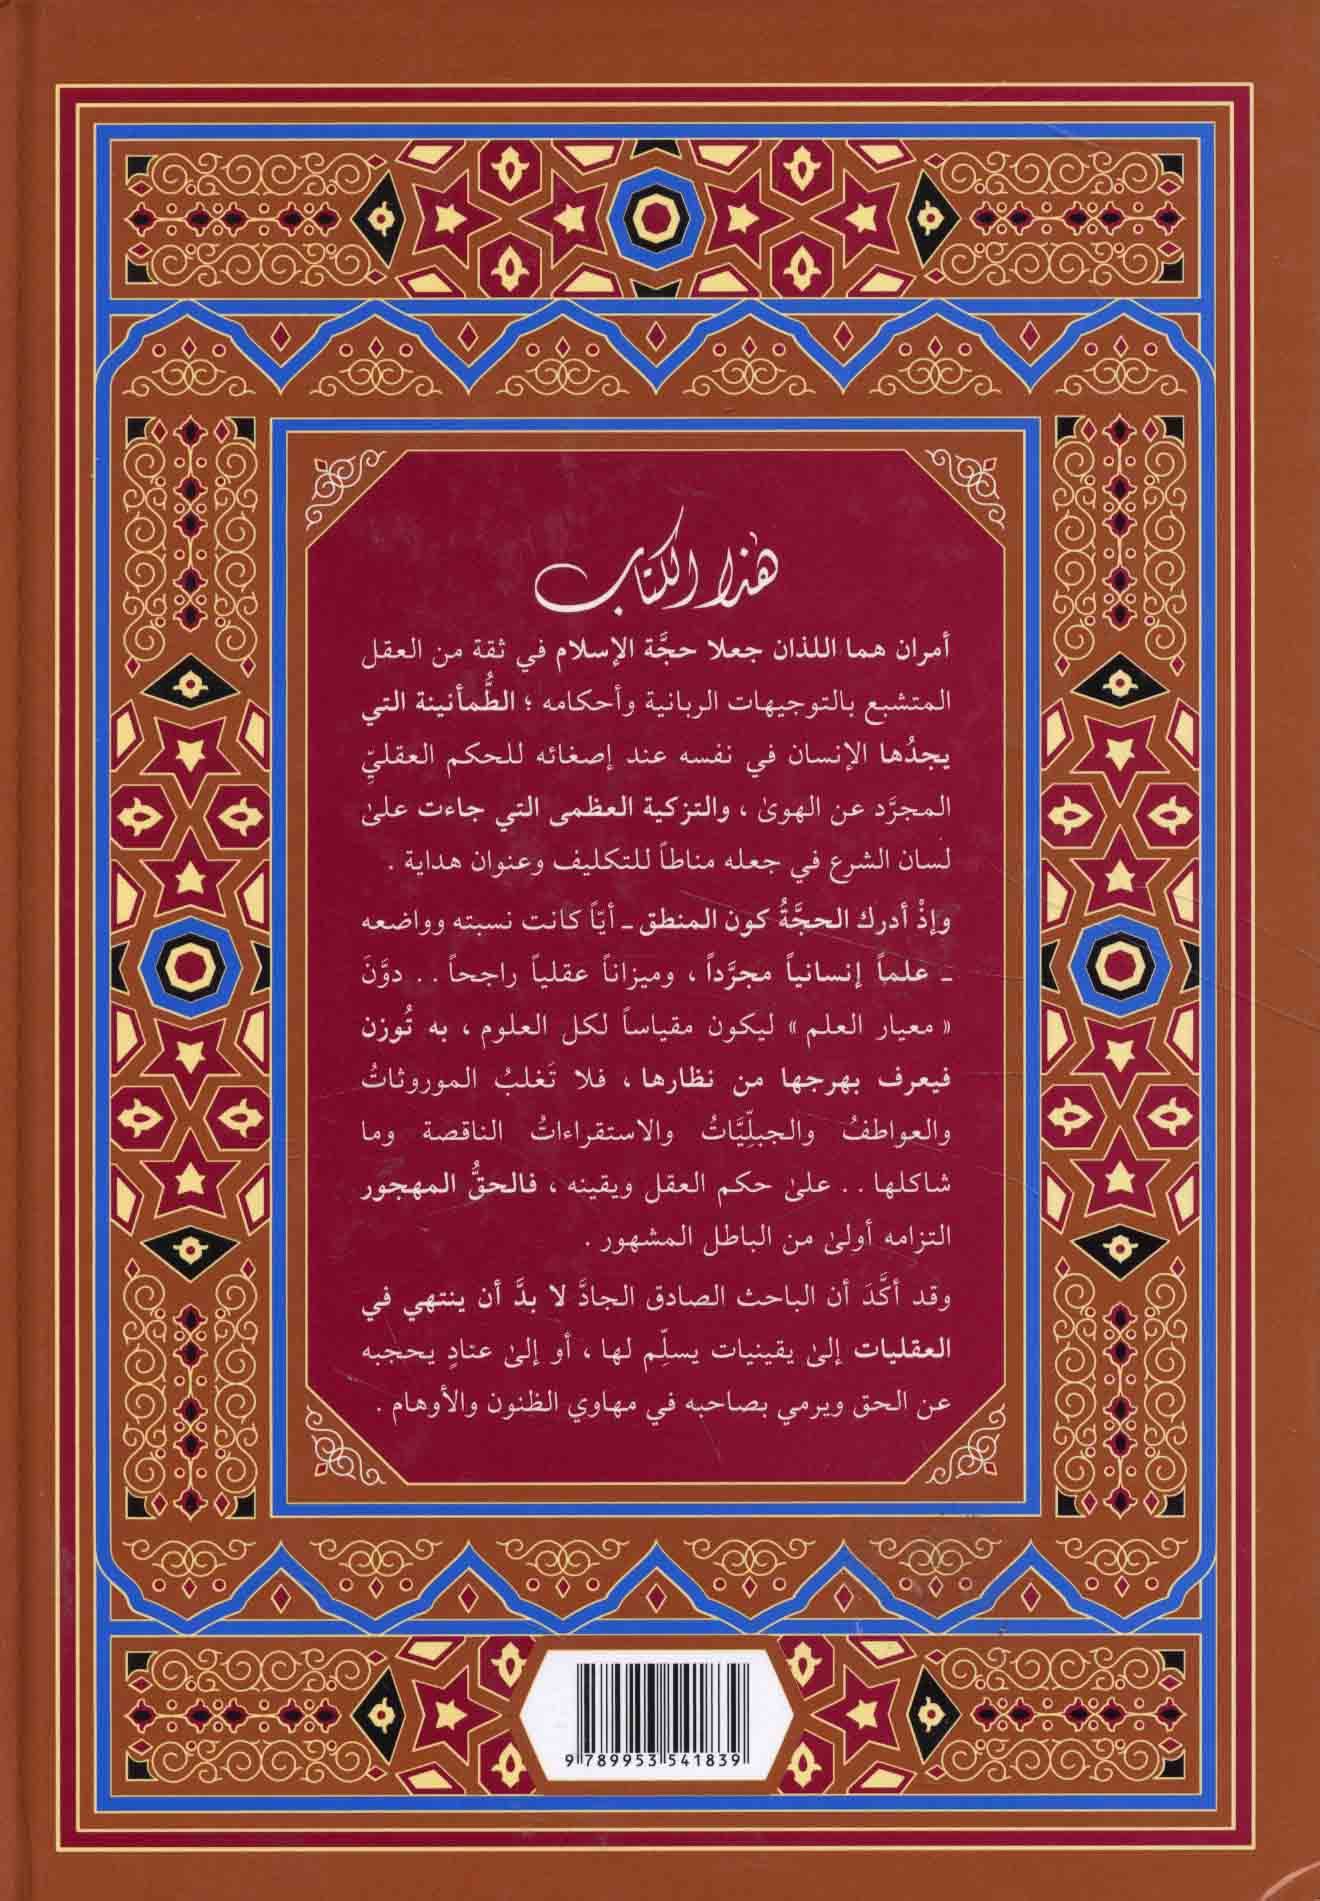 هذا الكتاب
أمران هما اللذان جعلا حجَّة الإسلام في ثقة من العقل
المتشبع بالتوجيهات الربانية وأحكامه ؛ الطُّمأنينة التي
يجدُها الإنسان في نفسه عند إصغائه للحكم العقليِّ
المجرَّد عن الهوىٰ ، والتزكية العظمى التي جاءت علىٰ
لسان الشرع في جعله مناطاً للتكليف وعنوان هداية .
وإذْ أدرك الحجَّةُ كون المنطق ـ أيّاً كانت نسبته وواضعه
ـ علماً إنسانياً مجرَّداً ، وميزاناً عقلياً راجحاً . . دوَّنَ
« معيار العلم » ليكون مقياساً لكل العلوم ، به تُوزن
فيعرف بهرجها من نظارها ، فلا تَغلبُ الموروثاتُ
والعواطفُ والجبلِّيَّاتُ والاستقراءاتُ الناقصة وما
شاكلها . . علىٰ حكم العقل ويقينه ، فالحقُّ المهجور
التزامه أولىٰ من الباطل المشهور .
وقد أكَّدَ أن الباحث الصادق الجادَّ لا بدَّ أن ينتهي في
العقليات إلىٰ يقينيات يسلِّم لها ، أو إلىٰ عنادٍ يحجبه
عن الحق ويرمي بصاحبه في مهاوي الظنون والأوهام .
9 789953 541839